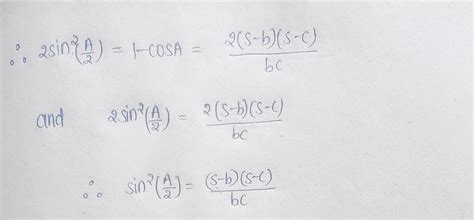 ∴ 2sin²(A/2) = 1-cosA = 2(s-b)(s-c)/bc
and 2sin²(A/2) = 2(s-b)(s-c)/bc
∴ sin²(A/2) = (s-b)(s-c)/bc